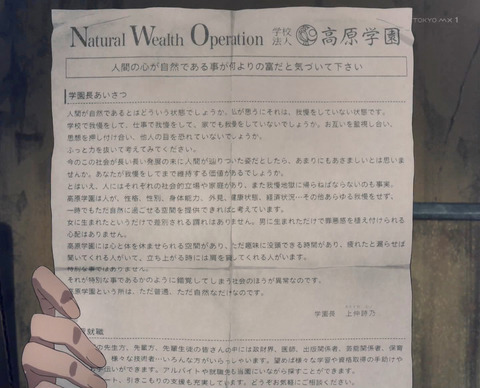 TOKYO MX 1
Natural Wealth Operation 学校法人 高原学園
人間の心が自然である事が何よりの富だと気づいて下さい
学園長あいさつ
人間が自然であるとはどういう状態でしょうか。私が思うにそれは、我慢をしていない状態です。
学校で我慢をして、仕事で我慢をして、家でも我慢をしていないでしょうか。お互いを監視し合い、
思想を押し付け合い、他人の目を恐れていないでしょうか。
ふっと力を抜いて考えてみてください。
今のこの社会が長い長い発展の末に人間が辿りついた姿だとしたら、あまりにもあさましいとは思いま
せんか。あなたが我慢をしてまで維持する価値があるでしょうか。
とはいえ、人にはそれぞれの社会的立場や家庭があり、また我慢地獄に帰らねばならないのも事実。
高原学園は人が、性格、性別、身体能力、外見、健康状態、経済状況…その他あらゆる我慢をせず、
一時でもただ自然に過ごせる空間を提供できればと考えています。
女に生まれたというだけで差別される謂れはありません。男に生まれただけで罪悪感を植え付けられる
心配はありません。
高原学園には心と体を休ませられる空間があり、ただ趣味に没頭できる時間があり、疲れたと漏らせば
聞いてくれる人がいて、立ち上がる時には肩を貸してくれる人がいます。
特別な事ではありません。
それが特別な事であるかのように錯覚してしまう社会のほうが異常なのです。
高原学園という所は、ただ普通、ただ自然なだけなのです。
学園長 上仲詩乃
就職
の先生方、先輩方、先輩生徒の皆さんの中には政財界、医師、出版関係者、芸能関係者、保育
様々な技術者…いろんな方がいらっしゃいます。望めば様々な学習や資格取得の手助けや
お手伝いができます。アルバイトや就職も当園にいながら探すことができます。
ート、引きこもりの支援も充実しています。どうぞお気軽にご相談ください。